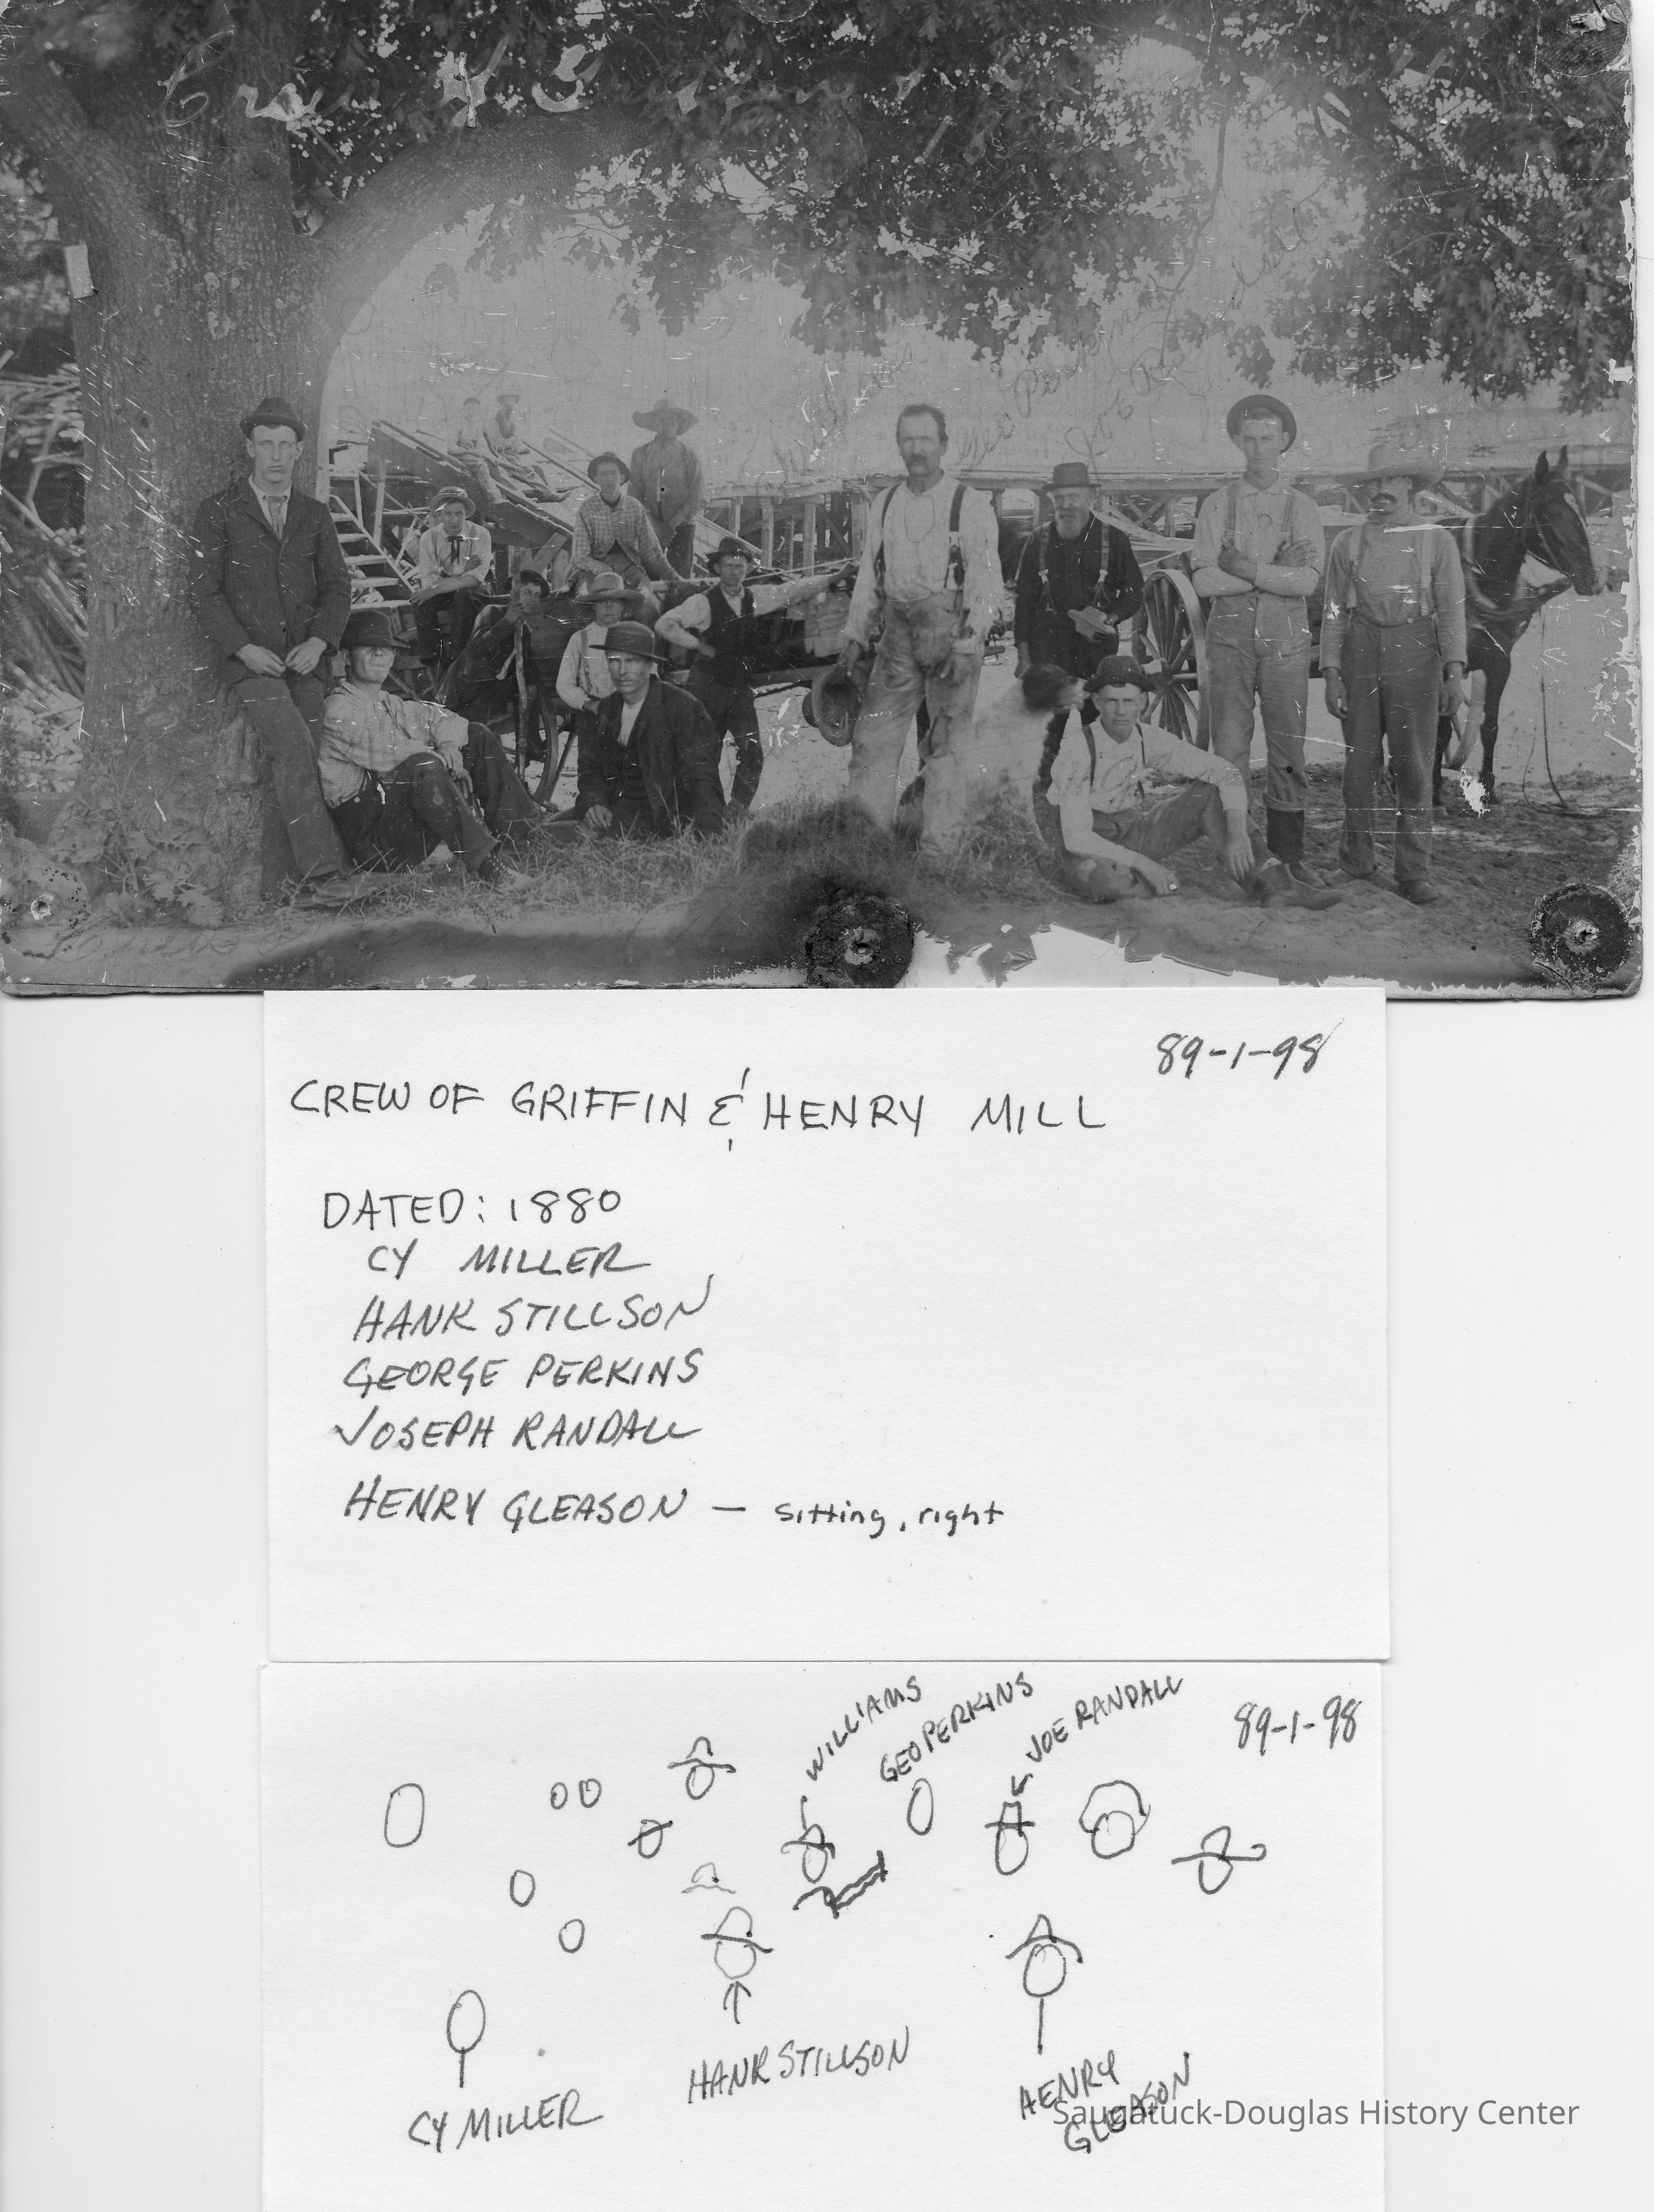 Crew of G
Williams
Geo Perkins
Joe Randall
89-1-98
CREW OF GRIFFIN & HENRY MILL
DATED: 1880
CY MILLER
HANK STILLSON
GEORGE PERKINS
JOSEPH RANDALL
HENRY GLEASON — sitting, right
WILLIAMS
GEO PERKINS
JOE RANDALL
89-1-98
HANK STILLSON
CY MILLER
HENRY
GLEASON
Saugatuck-Douglas History Center